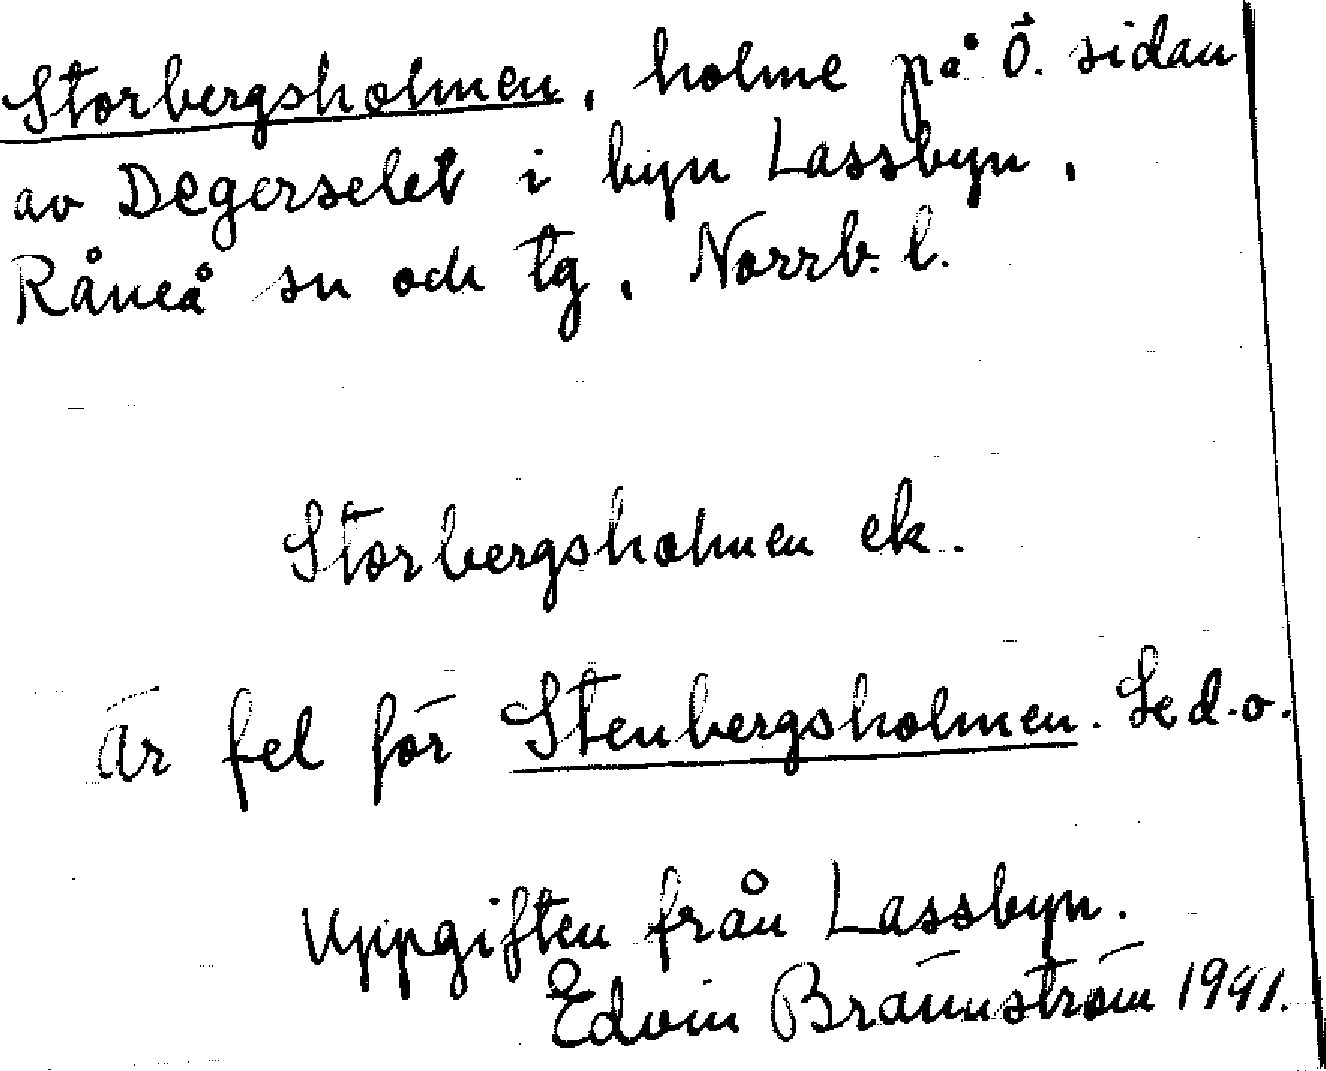 Storbergsholmen, holme på Ö. sidan
av Degerselet i byn Lassbyn,
Råneå sn och tg, Norrb. l.
Storbergsholmen ek.
Är fel för Stenbergsholmen. Se d.o.
Uppgiften från Lassbyn.
Edvin Brännström 1941.